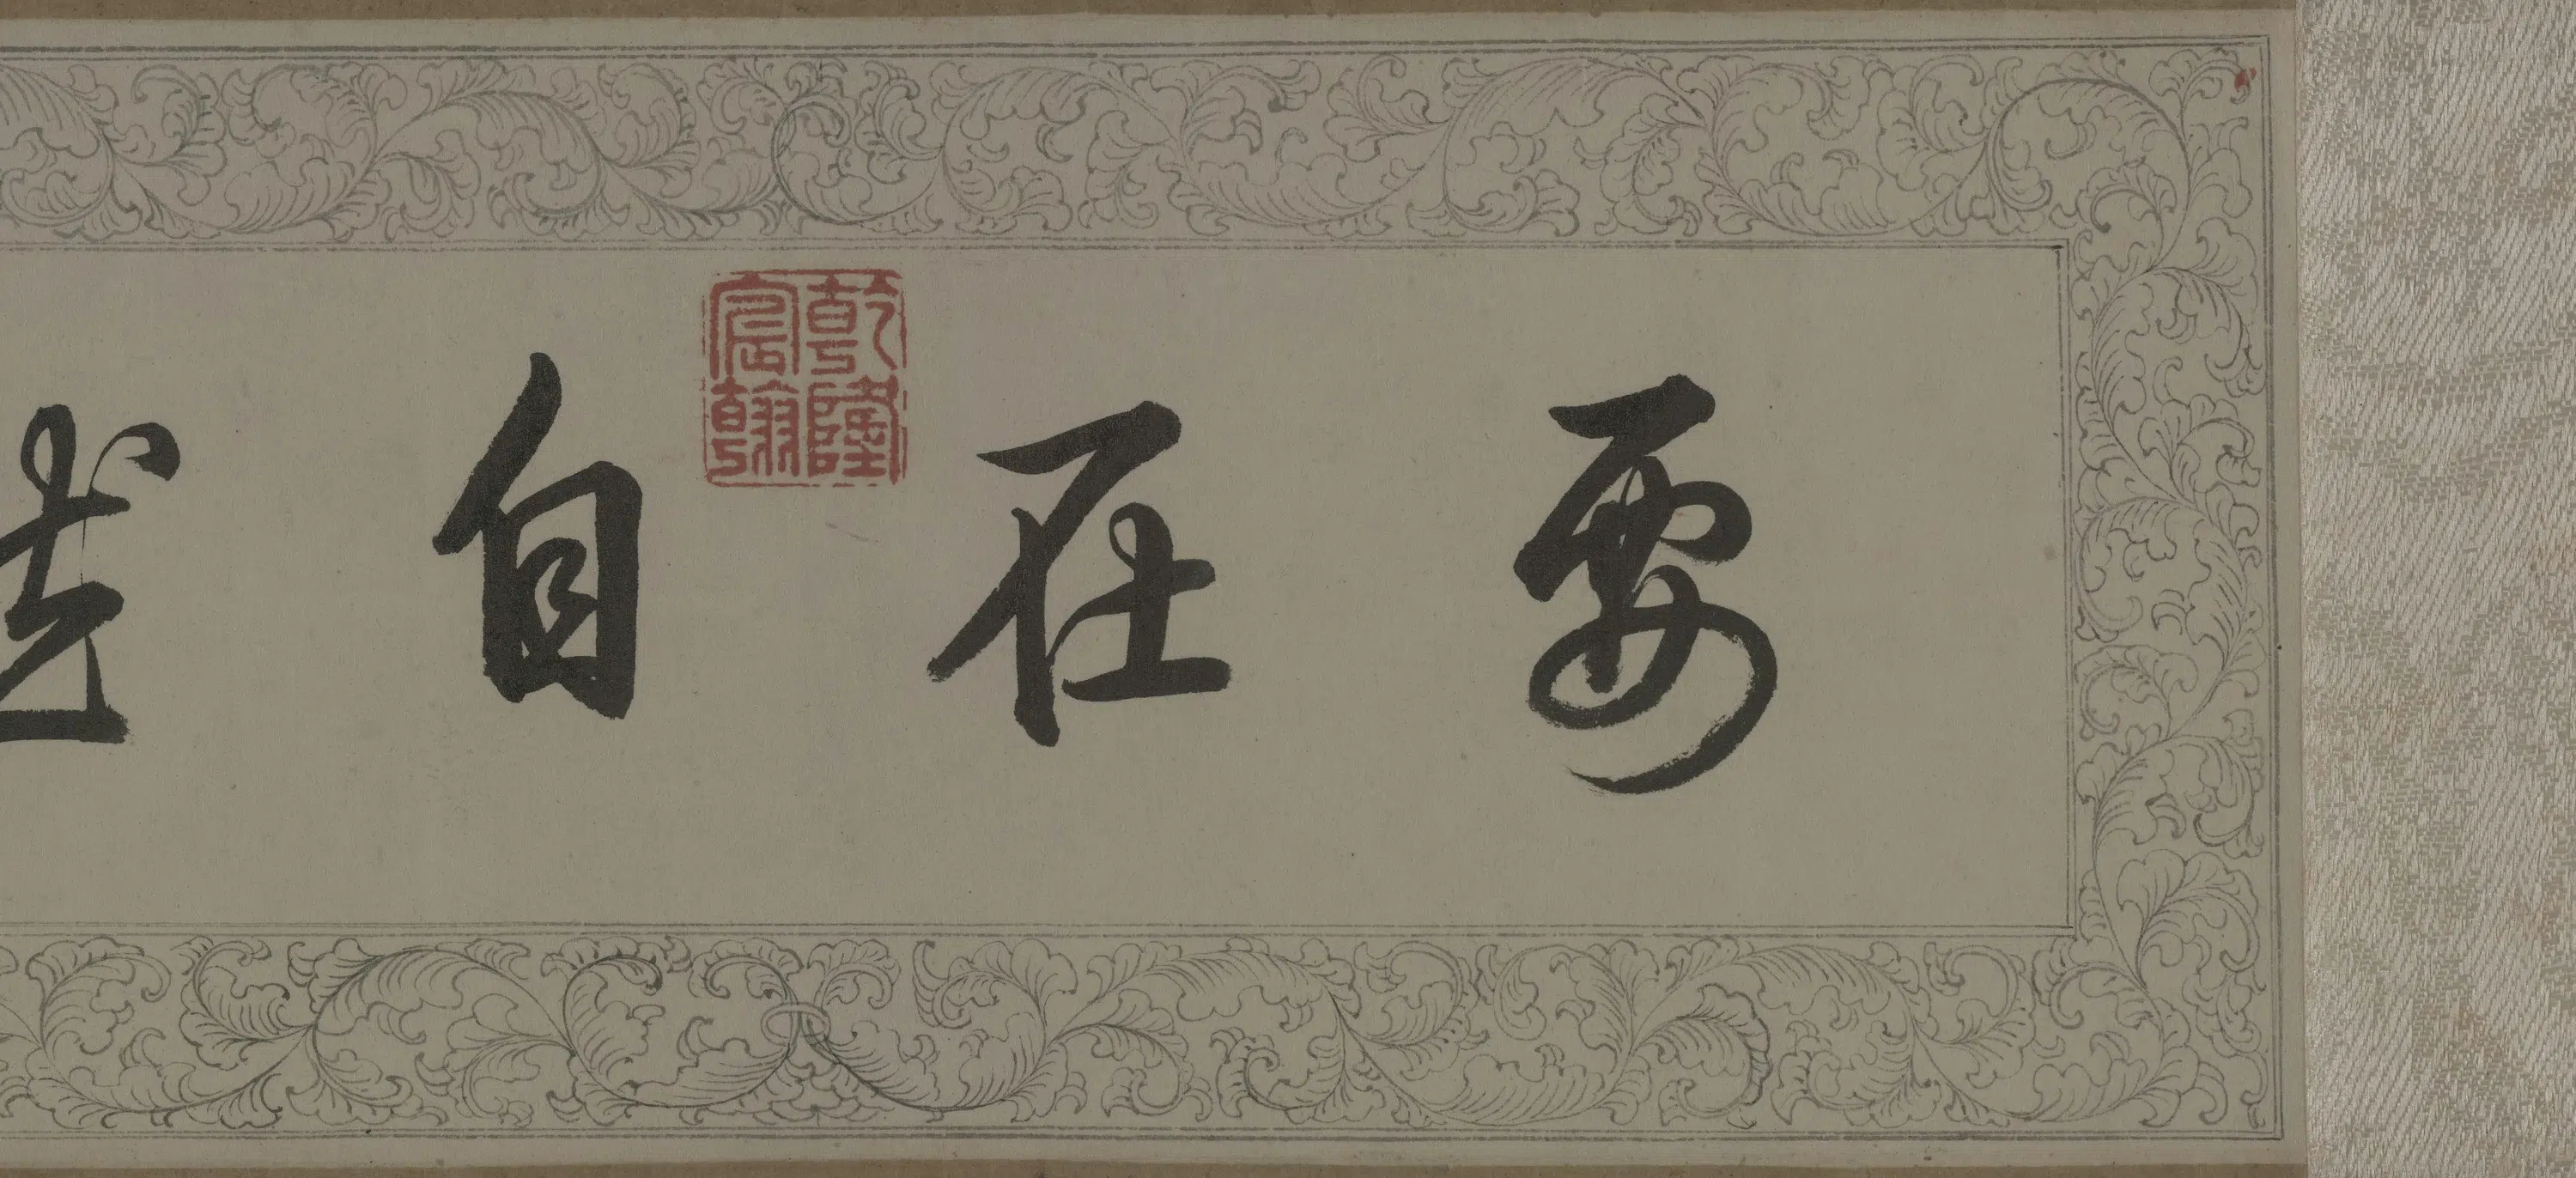 要在自
乾隆
宸翰